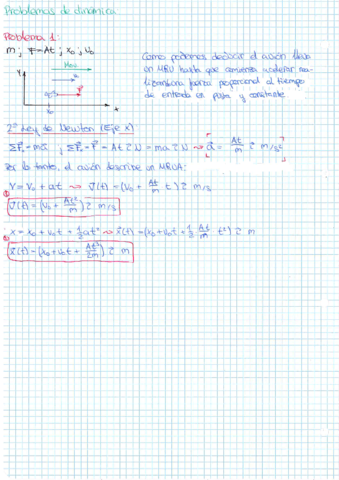 Problemas de dinámica
Problema 1:
m ; F=At ; x₀ ; v₀
Como podemos deducir el avión lleva
un MRU hasta que comienza acelerar
una fuerza proporcional al tiempo
de entrada es pura y constante
Y
MRU
F
x₀
x
2ª Ley de Newton (Eje X)
ΣF = ma ; ΣF = F = At î N = ma î N ⇝ [a = At/m î m/s²]
Por lo tanto, el avión describe un MRUA:
V = V₀ + at ⇝ V(t) = (V₀ + At/m t) î m/s
V(t) = (V₀ + At²/m) î m/s
x = x₀ + v₀t + ½at² ⇝ x(t) = (x₀ + v₀t + ½ At/m t²) î m
x(t) = (x₀ + v₀t + At³/2m) î m